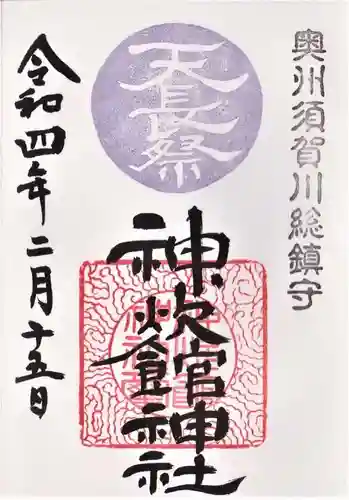 奥州須賀川総鎮守
天長祭
神炊館神社
令和四年二月十五日